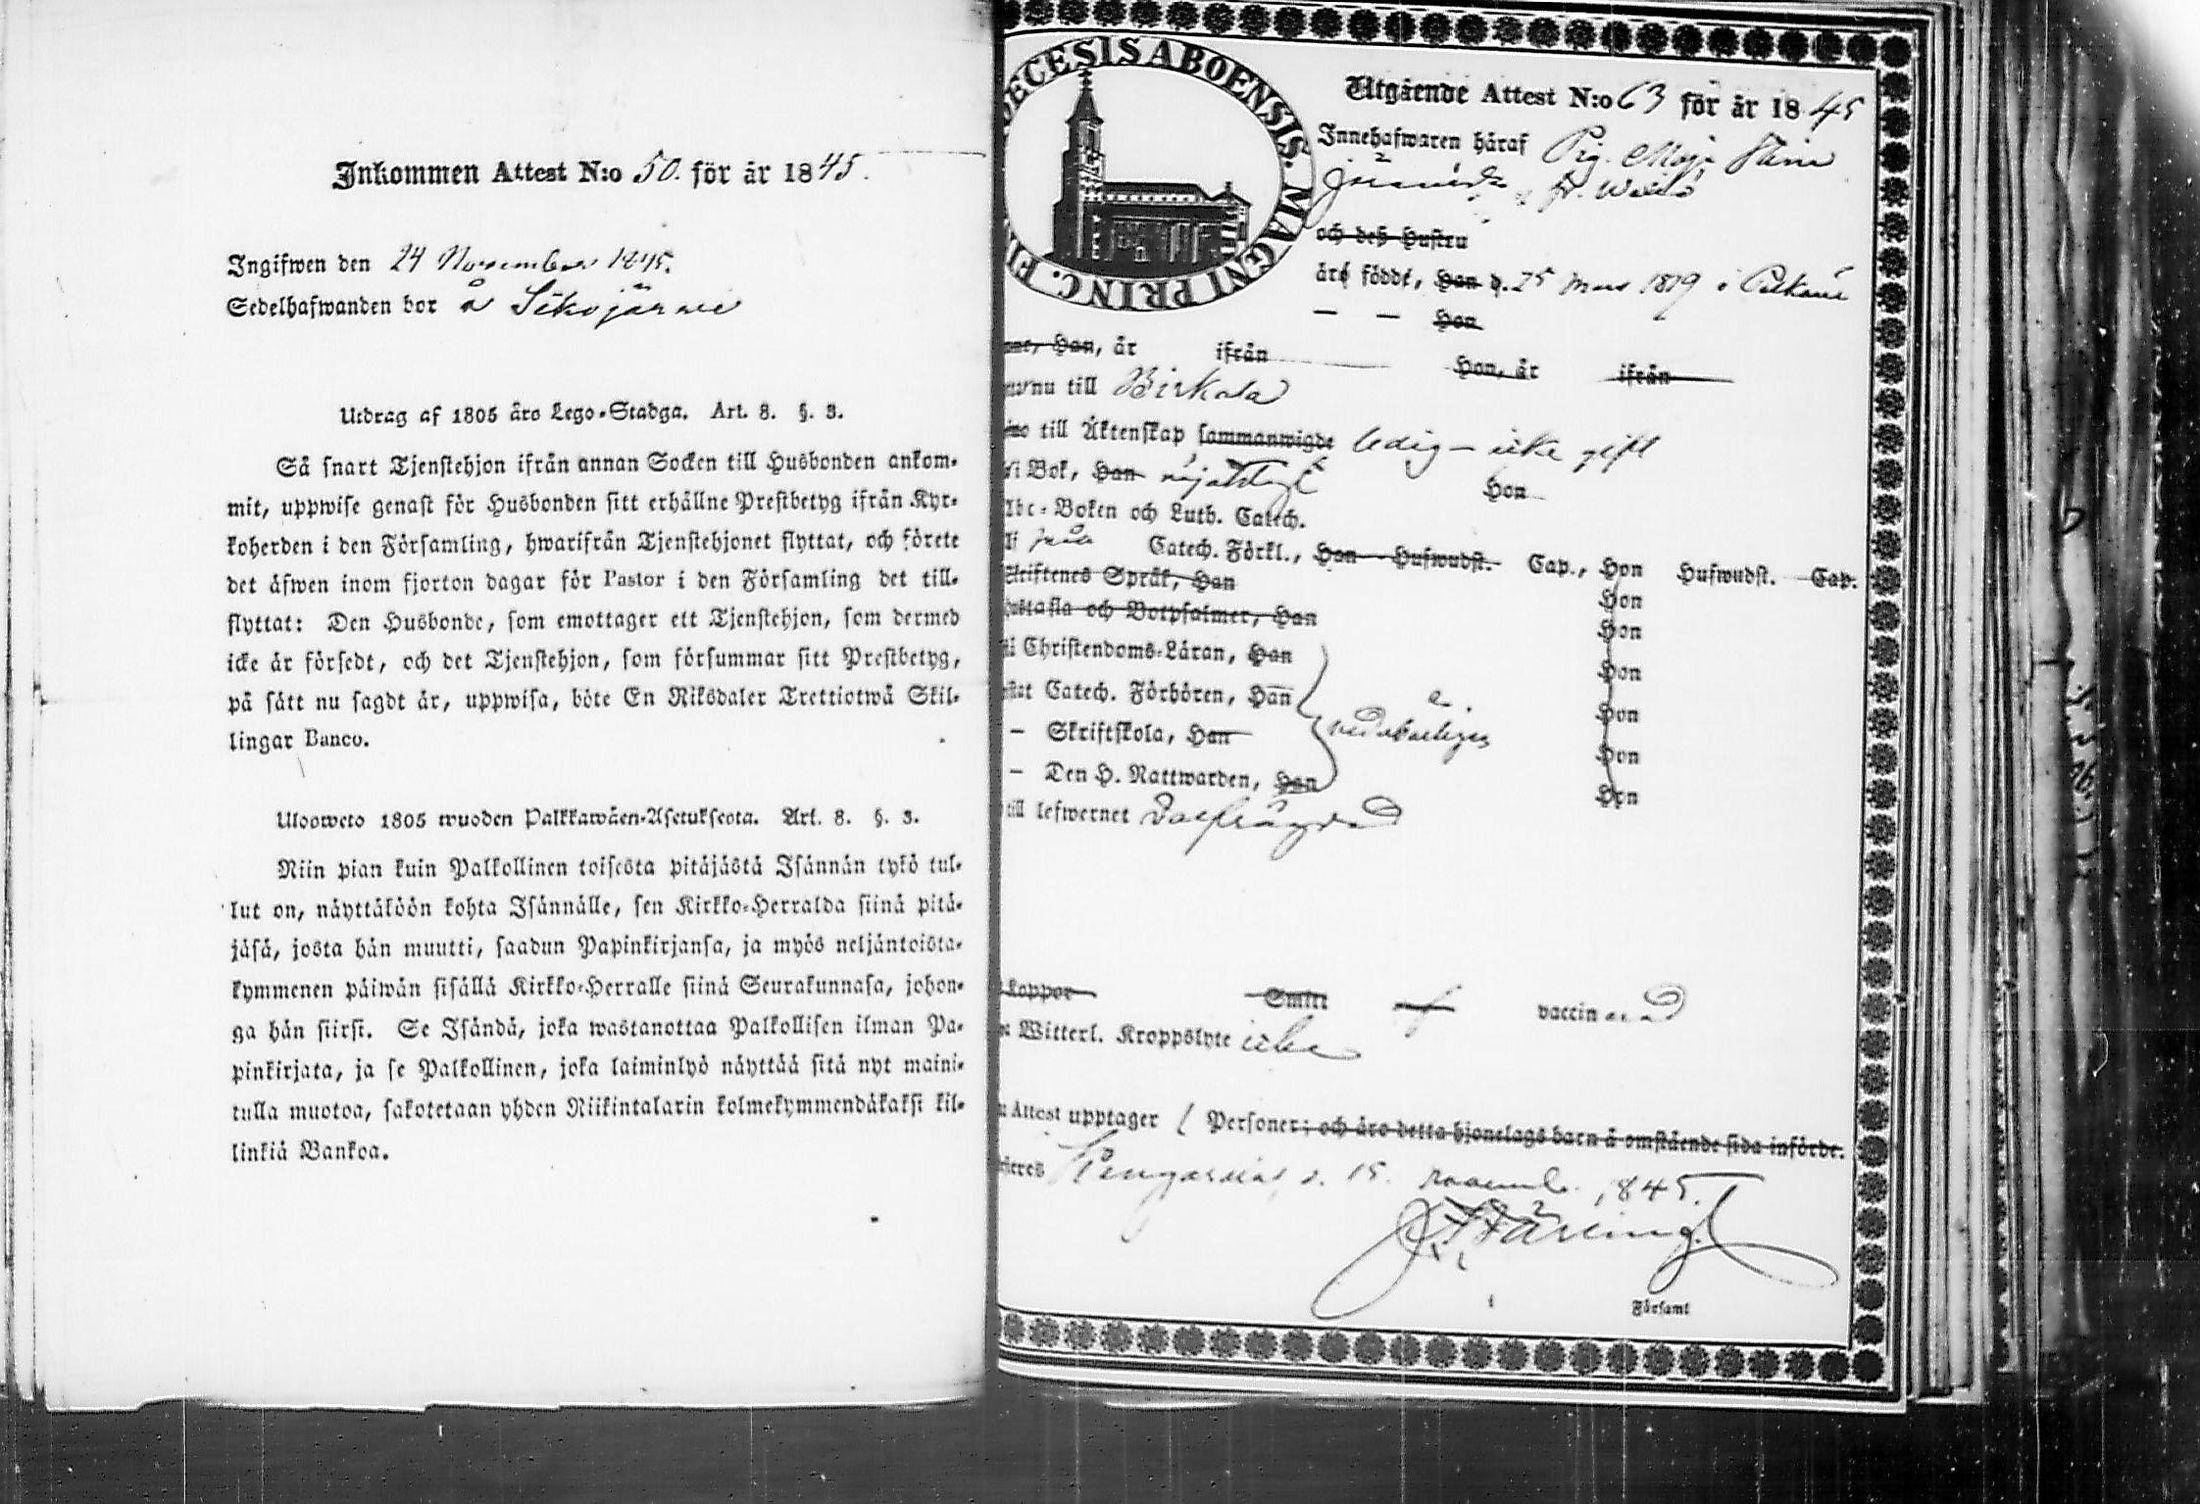 Inkommen Attest N:o 50. för år 1845.
Ingifwen den 24 November 1845.
Sedelhafwanden bor å Sikojärwi
Utdrag af 1805 års Lego-Stadga. Art. 8. §. 3.
Så snart Tjenstehjon ifrån annan Socken till Husbonden ankom-
mit, uppwise genast för Husbonden sitt erhållne Prestbetyg ifrån Kyr-
koherden i den Församling, hwarifrån Tjenstehjonet flyttat, och förete
det äfwen inom fjorton dagar för Pastor i den Församling det till-
flyttat: Den Husbonde, som emottager ett Tjenstehjon, som dermed
icke är försedt, och det Tjenstehjon, som försummar sitt Prestbetyg,
på sätt nu sagdt är, uppwisa, böte En Riksdaler Trettiotwå Skil-
lingar Banco.
Ulosweto 1805 wuoden Palkkawäen-Asetuksesta. Art. 8. §. 3.
Niin pian kuin Palkollinen toisesta pitäjästä Isännän tykö tul-
lut on, näyttäköön kohta Isännälle, sen Kirkko-Herralda siinä pitä-
jäsä, josta hän muutti, saadun Papinkirjansa, ja myös neljäntoista-
kymmenen päiwän sisällä Kirkko-Herralle siinä Seurakunnasa, johon-
ga hän siirsi. Se Isändä, joka wastanottaa Palkollisen ilman Pa-
pinkirjata, ja se Palkollinen, joka laiminlyö näyttää sitä nyt maini-
tulla muotoa, sakotetaan yhden Riikintalarin kolmekymmendäkaksi kil-
linkiä Bankoa.
ECESIS ABOENSIS. MAGNI PRINC. FI
Utgående Attest N:o 63 för år 1845
Innehafwaren häraf Pig. Maja Stina
och deß Hustru
äro födde, Han d. 25 Mars 1819 i Pelkäne
— — Hon
Han, år ifrån Hon, år ifrån
nu till Birkala
till Äktenskap sammanwigde ledig – icke gift
i Bok, Han nöjaktigt Hon
Abc-Boken och Luth. Catech.
Catech. Förkl., Han Hufwudst. Cap., Hon Hufwudst. Cap.
Skriftenes Språk, Han Hon
Hustafla och Botpsalmer, Han Hon
Christendoms-Läran, Han Hon
Catech. Förhören, Han Hon
— Skriftskola, Han Hon
— Den H. Nattwarden, Han Hon
till lefwernet välfrägdad
koppor Smitt vaccinerad
Witterl. Kroppslyte icke
Attest upptager 1 Personer; och äro detta hjonelags barn å omstående sida införde.
Kengasala, d. 15. November 1845.
Församl